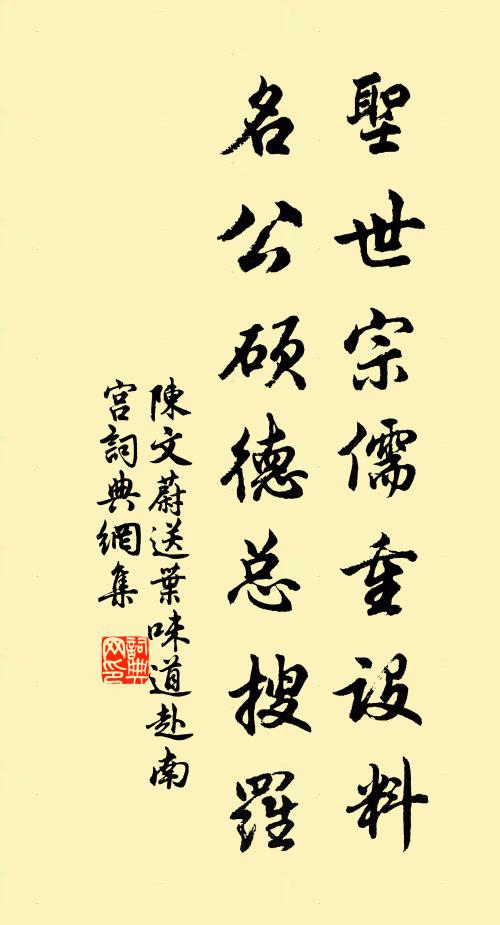 聖世宗儒重設料
名公碩德总搜羅
陳文蔚送葉味道赴南
宫詞典網集
詞典网印